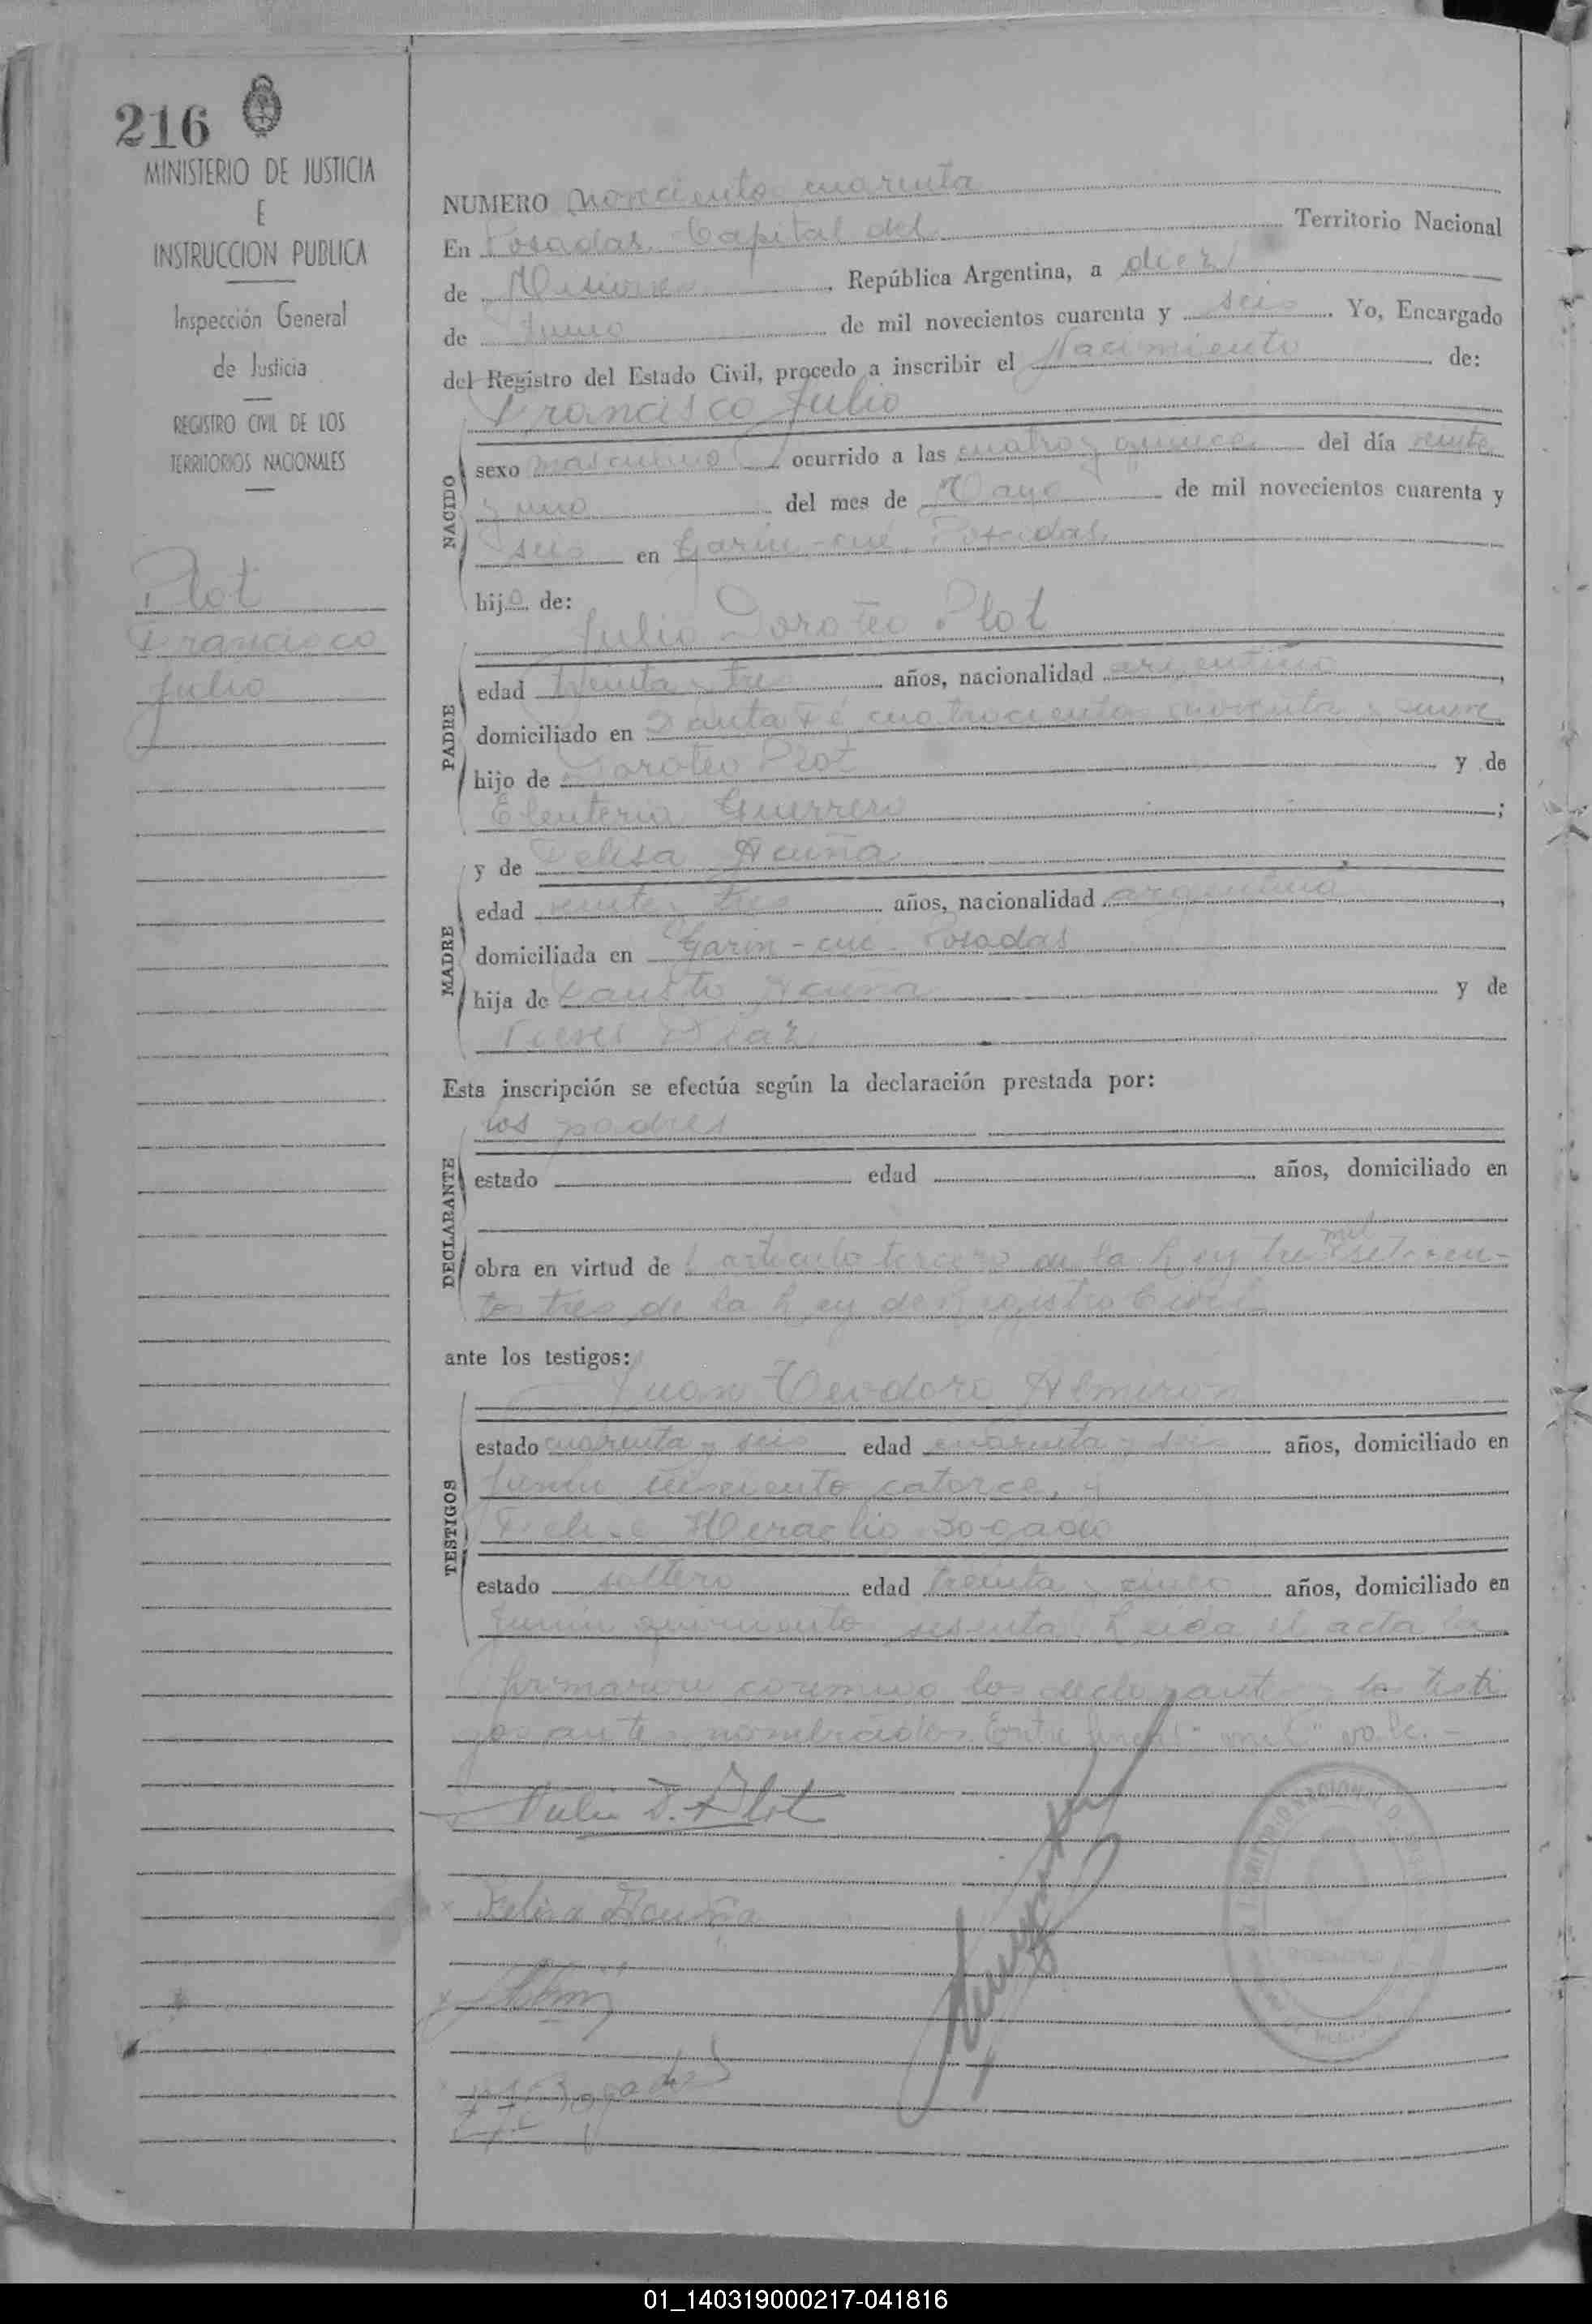 216
MINISTERIO DE JUSTICIA
E
INSTRUCCION PUBLICA
Inspección General
de Justicia
REGISTRO CIVIL DE LOS
TERRITORIOS NACIONALES
Plot
Francisco
Julio
NUMERO novecientos cuarenta
En Posadas Capital del Territorio Nacional
de Misiones, República Argentina, a diez
de Junio de mil novecientos cuarenta y seis. Yo, Encargado
del Registro del Estado Civil, procedo a inscribir el Nacimiento de:
Francisco Julio
NACIDO
sexo masculino ocurrido a las cuatro y quince del día veinte
y uno del mes de Mayo de mil novecientos cuarenta y
seis en Garin-cué Posadas
hijo de:
Julio Doroteo Plot
PADRE
edad treinta y tres años, nacionalidad argentino,
domiciliado en Santa Fé cuatrocientos noventa y nueve
hijo de Doroteo Plot y de
Eleuteria Guerrero;
y de Felisa Acuña
MADRE
edad veinte y tres años, nacionalidad argentina,
domiciliada en Garin-cué Posadas
hija de Fausto Acuña y de
Nieves Diaz
Esta inscripción se efectúa según la declaración prestada por:
los padres
DECLARANTE
estado edad años, domiciliado en
obra en virtud de articulo tercero de la Ley tres mil setecien-
tos tres de la Ley de Registro Civil
ante los testigos:
Juan Teodoro Almiron
TESTIGOS
estado cuarenta y seis edad cuarenta y seis años, domiciliado en
Junin seiscientos catorce, y
Heraclio Bogado
estado soltero edad treinta y cinco años, domiciliado en
Junin quinientos sesenta. Leida el acta la
firmaron conmigo los declarantes y los testi
gos antes nombrados. Entre lineas: "mil" vale.-
Julio D. Plot
Felisa Acuña
Bogado
01_140319000217-041816